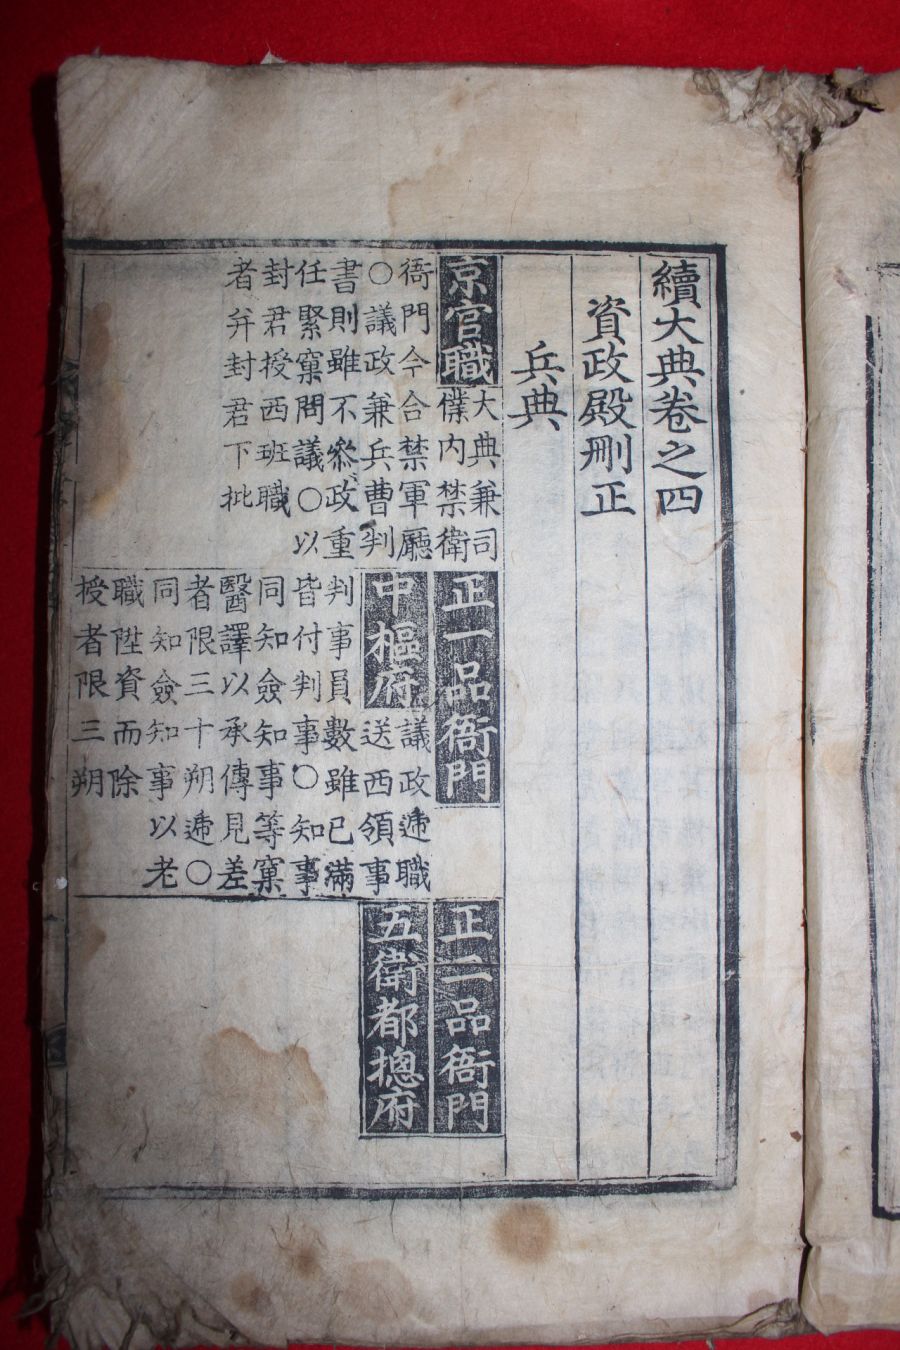 續大典卷之四
資政殿刪正
兵典
京官職
大典兼司
僕內禁衛
衙門今合禁軍廳
○議政兼兵曹判
書則雖不叅政重
任緊窠問議○以
封君授西班職
者幷封君下批
正一品衙門
中樞府
議政遆職
送西領事
判事員數雖已滿
皆付判事○知事
同知僉知事等窠
醫譯以承傳見差
者限三十朔遆○
同知僉知事以老
職陞資而除
授者限三朔
正二品衙門
五衛都摠府